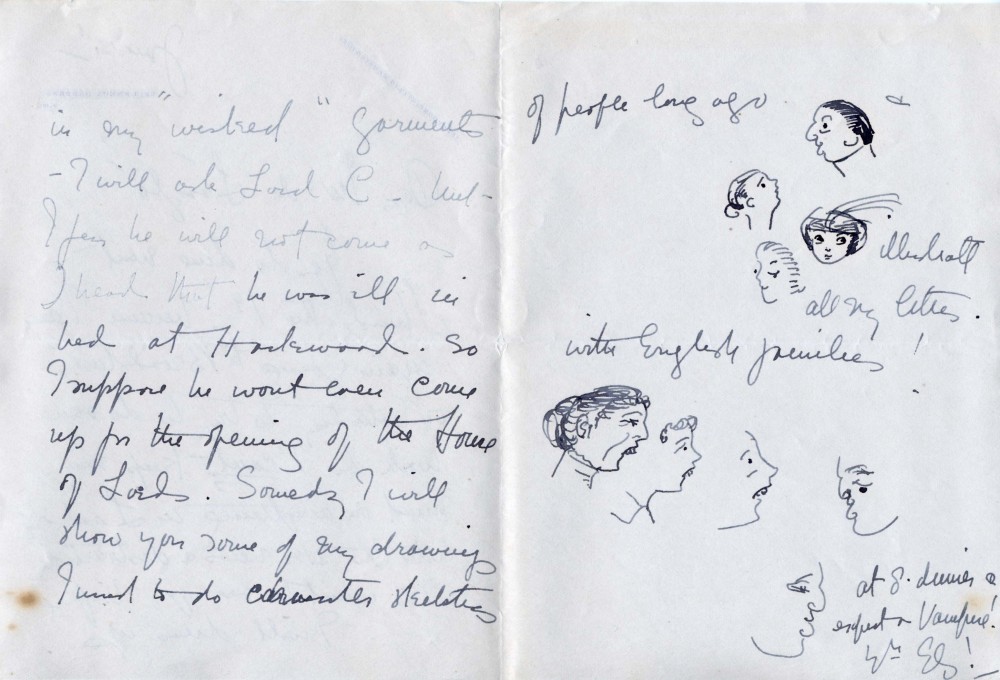 in my "wicked" garments
- I will ask Lord C - but -
I fear he will not come as
I heard that he was ill in
bed at Hackwood. So
I suppose he wont even come
up for the opening of the House
of Lords. Someday I will
show you some of my drawings
I used to do sketches
of people long ago &
illustrate
all my letters.
with English families!
at 8. dinner
expect a Vampire!